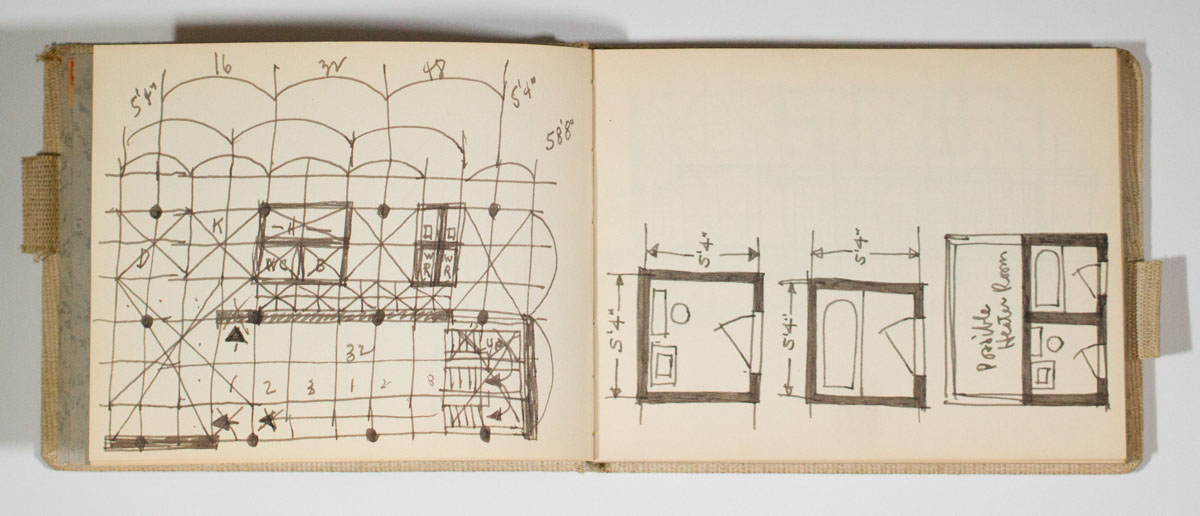 16 32 48
5'4" 5'4"
58'8"
K
H
D
WC B
W W
R R
UP
32
1 2 3 1 2 3
5'4"
5'4"
5'4"
5'4"
Possible
Heater Room